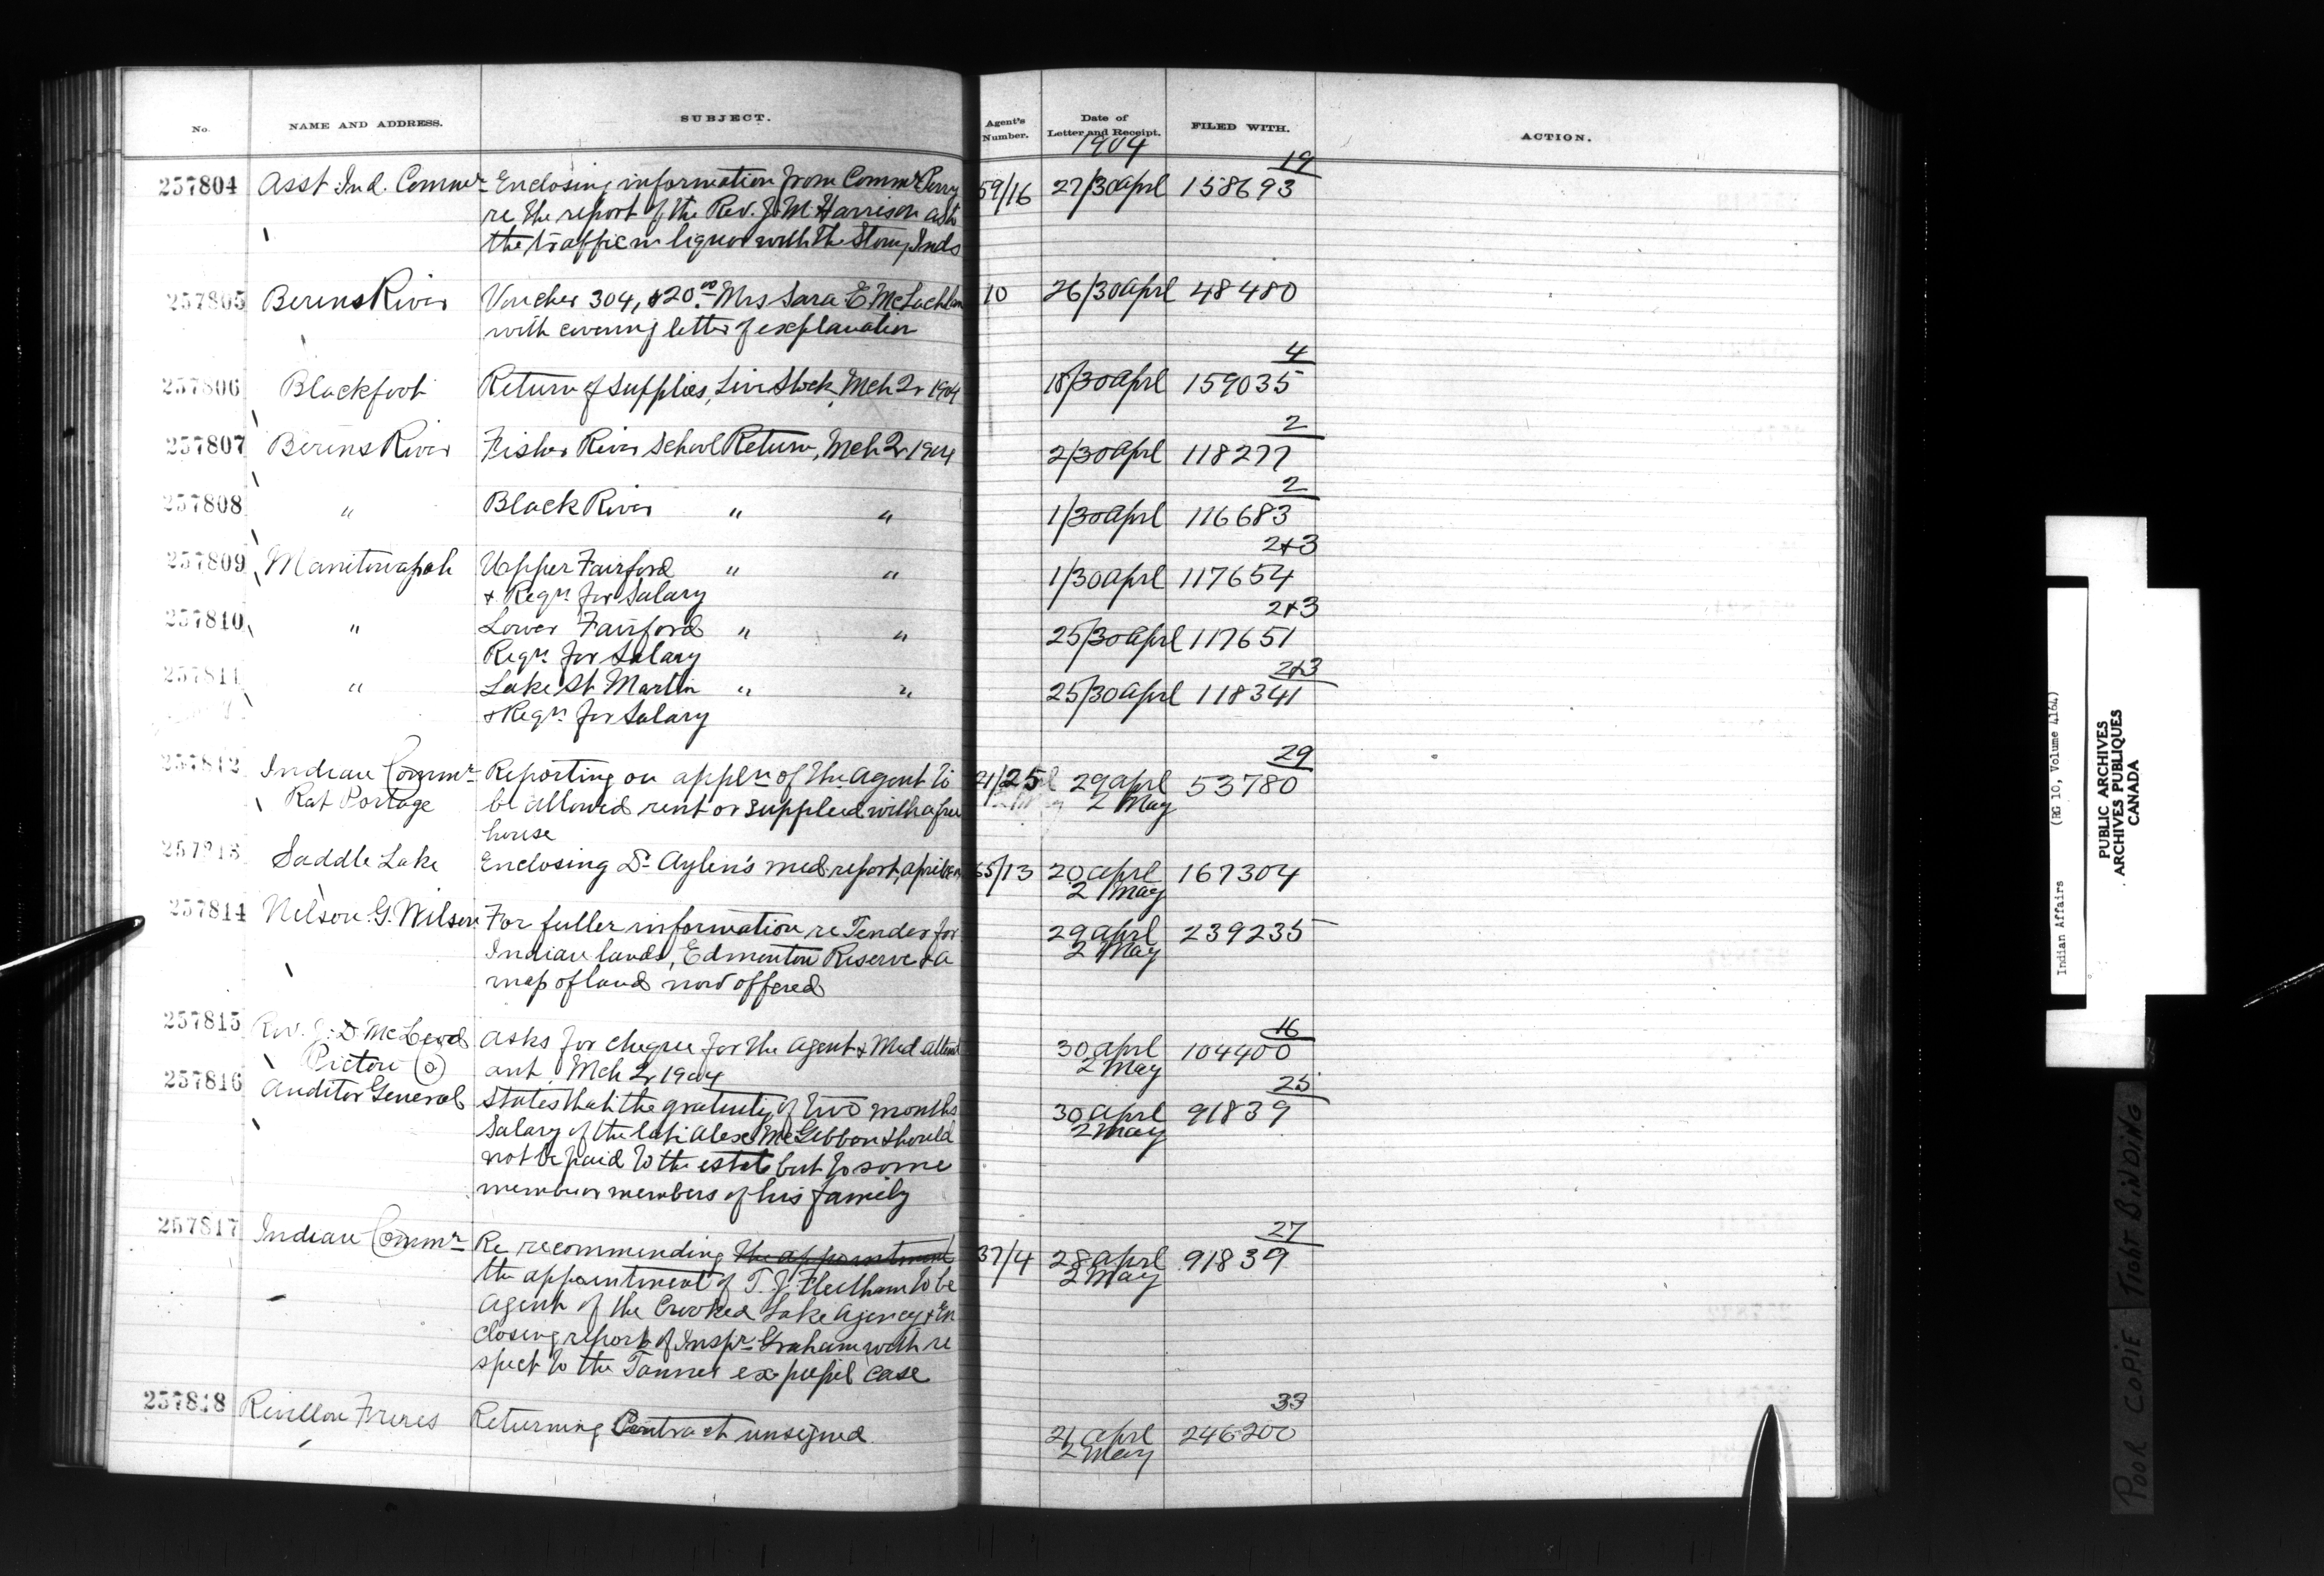 No. NAME AND ADDRESS. SUBJECT. Agent's Number. Date of Letter and Receipt. FILED WITH. ACTION.
1904
19
257804 Asst Ind. Commr Enclosing information from Commr Perry 59/16 27/30 Aprl 158693
re the report of the Rev. J. M. Harrison as to
the traffic in liquor with the Stony Inds
257805 Berens River Voucher 304, $20.00 Mrs Sara E. McLachlan 10 26/30 Aprl 48480
with covering letter of explanation
4
257806 Blackfoot Return of Supplies, Live Stock, Mch Qr 1904 18/30 Aprl 159035
2
257807 Berens River Fisher River School Return, Mch Qr 1904 2/30 Aprl 118277
2
257808 " Black River " " 1/30 Aprl 116683
2+3
257809 Manitowapah Upper Fairford " " 1/30 Aprl 117654
& Reqn for Salary
2+3
257810 " Lower Fairford " " 25/30 Aprl 117651
Reqn for Salary
2+3
257811 " Lake St Martin " " 25/30 Aprl 118341
& Reqn for Salary
29
257812 Indian Commr Reporting on appln of the Agent to 21/25 29 Aprl 53780
Rat Portage be allowed rent or supplied with a free 2 May
house
257813 Saddle Lake Enclosing Dr Aylen's med. report, 65/13 20 Aprl 167304
2 May
257814 Nelson G. Wilson For fuller information re Tender for 29 Aprl 239235
Indian lands, Edmonton Reserve & a 2 May
map of land now offered
16
257815 Rev. J. D. McLeod Asks for cheque for the Agent & Med attend 30 Aprl 104400
Pictou ant, Mch Qr 1904 2 May
25
257816 Auditor General States that the gratuity of two months 30 Aprl 91839
salary of the late Alex McGibbon should 2 May
not be paid to the estate but to some
member or members of his family
27
257817 Indian Commr Re recommending the appointment 37/4 28 Aprl 91839
the appointment of T. J. Fleetham to be 2 May
Agent of the Crooked Lake Agency & En
closing report of Inspr Graham with re
spect to the Tanner ex pupil case
33
257818 Revillon Freres Returning Contract unsigned 21 Aprl 246200
2 May
Indian Affairs (RG 10, Volume 4164)
PUBLIC ARCHIVES
ARCHIVES PUBLIQUES
CANADA
POOR COPIE TIGHT BINDING